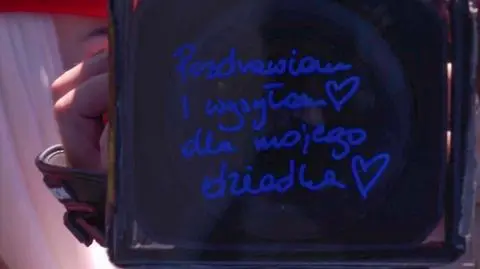 Pozdrawiam
i wysyłam ♡
dla mojego
dziadka ♡